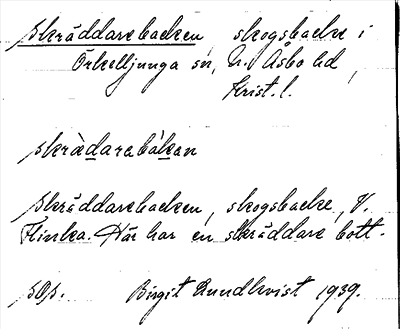 Skräddarebacken, skogsbacke i
Örkelljunga sn, N. Åsbo hd,
Krist. l.
skrädarebàkan
Skräddarebacken, skogsbacke, V.
Flinka. Här har en skräddare bott.
Birgit Rundkvist 1939.